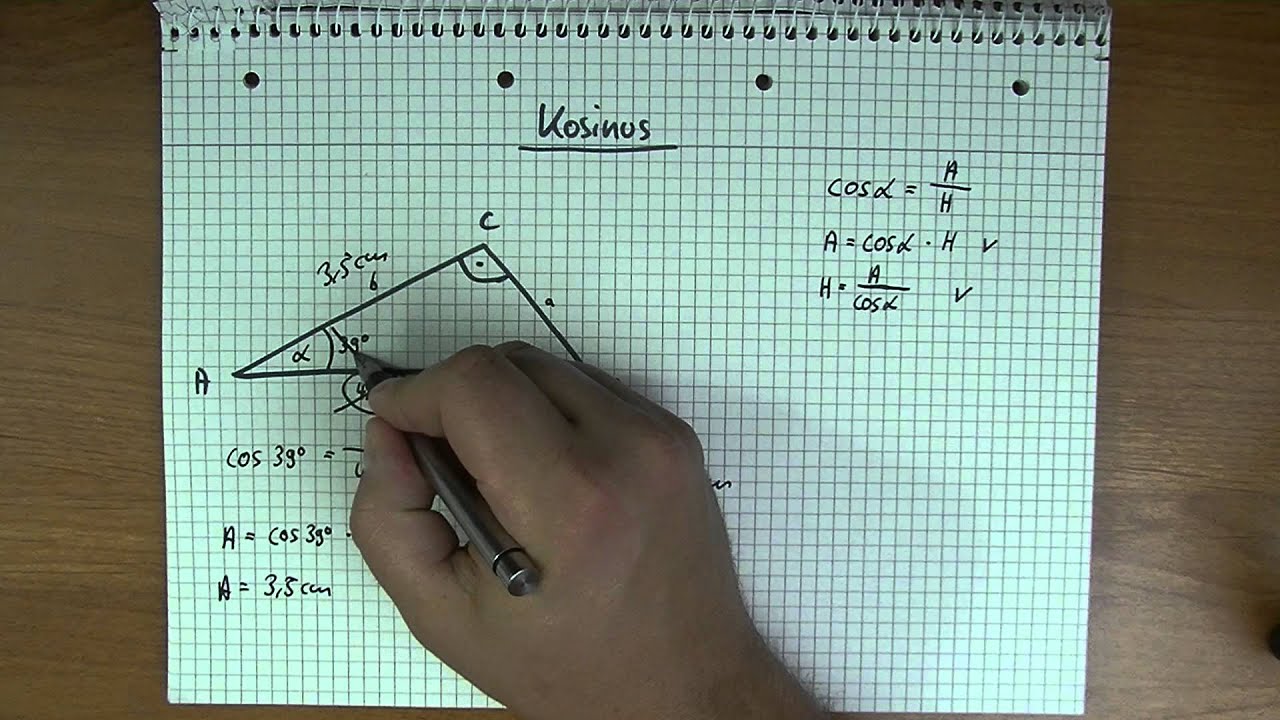 Kosinus
cosα = A/H
A = cosα · H ✓
H = A/cosα ✓
C
3,5 cm
b
a
α
39°
A
cos 39° =
A = cos 39° ·
A = 3,5 cm